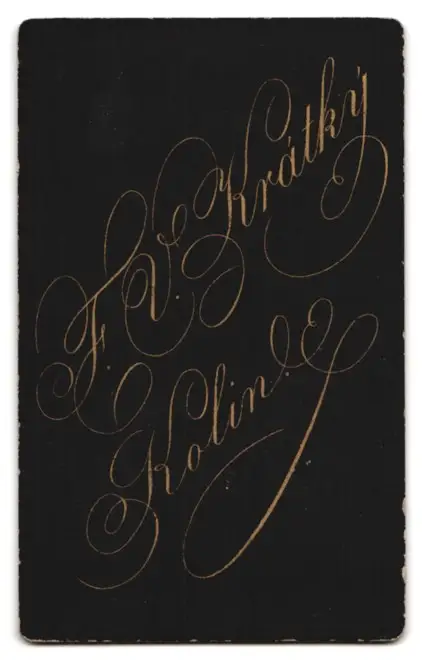 F. V. Krátký
Kolin.